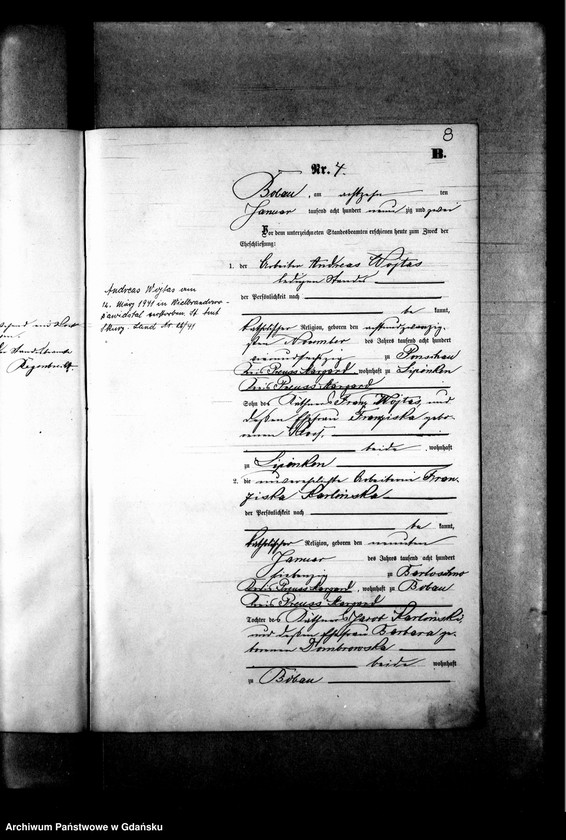 8
B.
Nr. 4.
Bobau, am achtzehn ten
Januar tausend acht hundert neun zig und zwei
Vor dem unterzeichneten Standesbeamten erschienen heute zum Zweck der
Eheschließung:
1. der Arbeiter Andreas Wojtas
ledigen Standes
der Persönlichkeit nach
be kannt,
katholischer Religion, geboren den
ten November des Jahres tausend acht hundert
vierundsechzig zu Ponschau
Kreis Preuss Stargard, wohnhaft zu Lipinken
Kreis Preuss Stargard
Sohn des Käthners Franz Wojtas, und
dessen Ehefrau Franziska gebo-
renen
beide, wohnhaft
zu Lipinken
2. die unverehelichte Arbeiterin Fran-
ziska Karlonska
der Persönlichkeit nach
be kannt,
katholischer Religion, geboren den neunten
Januar des Jahres tausend acht hundert
siebenzig zu
Kreis Preuss Stargard, wohnhaft zu Bobau
Kreis Preuss Stargard
Tochter des Käthners Jacob
und dessen Ehefrau Barbara ge-
borenen Dombrowska
beide wohnhaft
zu Bobau
Andreas Wojtas am
14. März 1941 in
verstorben. St. Amt
Land Nr.
Archiwum Państwowe w Gdańsku